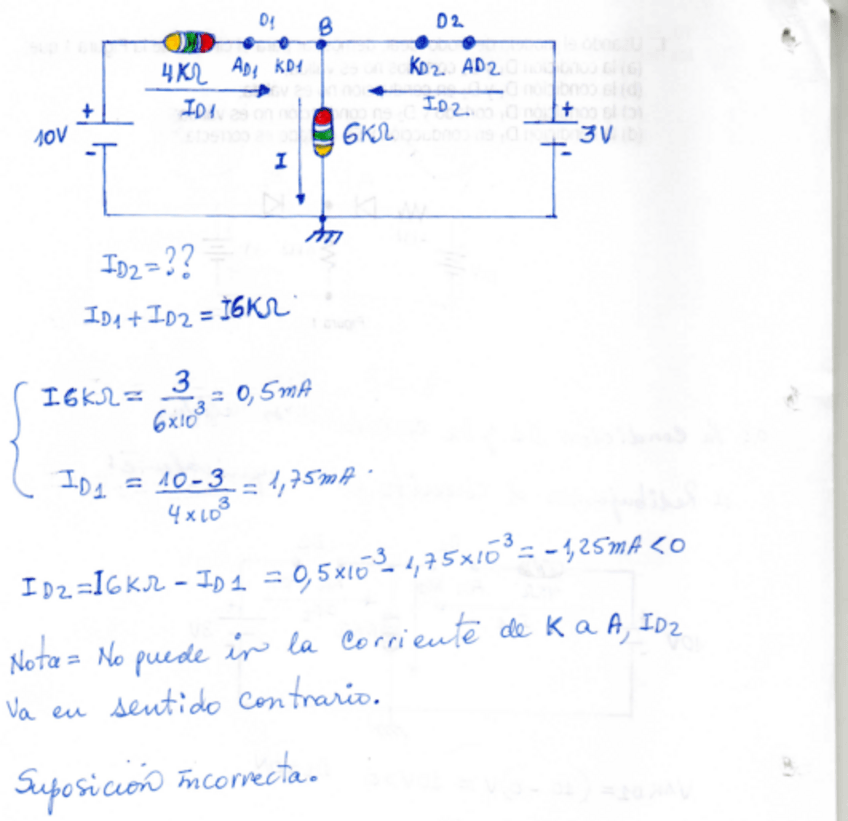 D1
B
D2
4KΩ
AD1
KD1
KD2
AD2
ID1
ID2
+
10V
-
I
6KΩ
+
3V
-
ID2 = ??
ID1 + ID2 = I6KΩ
I6KΩ = 3 / 6x10³ = 0,5mA
ID1 = 10-3 / 4x10³ = 1,75mA
ID2 = I6KΩ - ID1 = 0,5x10⁻³ - 1,75x10⁻³ = -1,25mA < 0
Nota = No puede ir la corriente de K a A, ID2
Va en sentido contrario.
Suposición incorrecta.